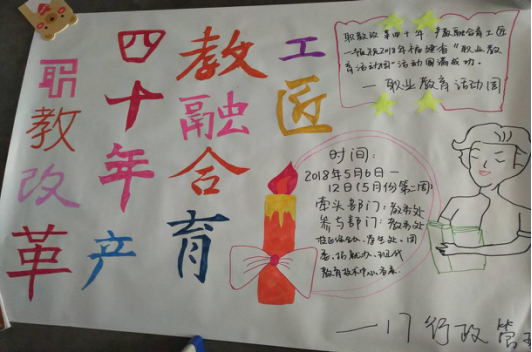 职教改革
四十年产
教融合育
工匠
职教改革四十年 产教融合育工匠
一祝祝2018年福建省“职业教
育活动周”活动圆满成功.
— 职业教育活动周
时间:
2018年5月6日—
12日(5月份第二周)
牵头部门:教务处
参与部门:教务处
学生处、团
委、招就办、现代
教育技术中心
—17行政管